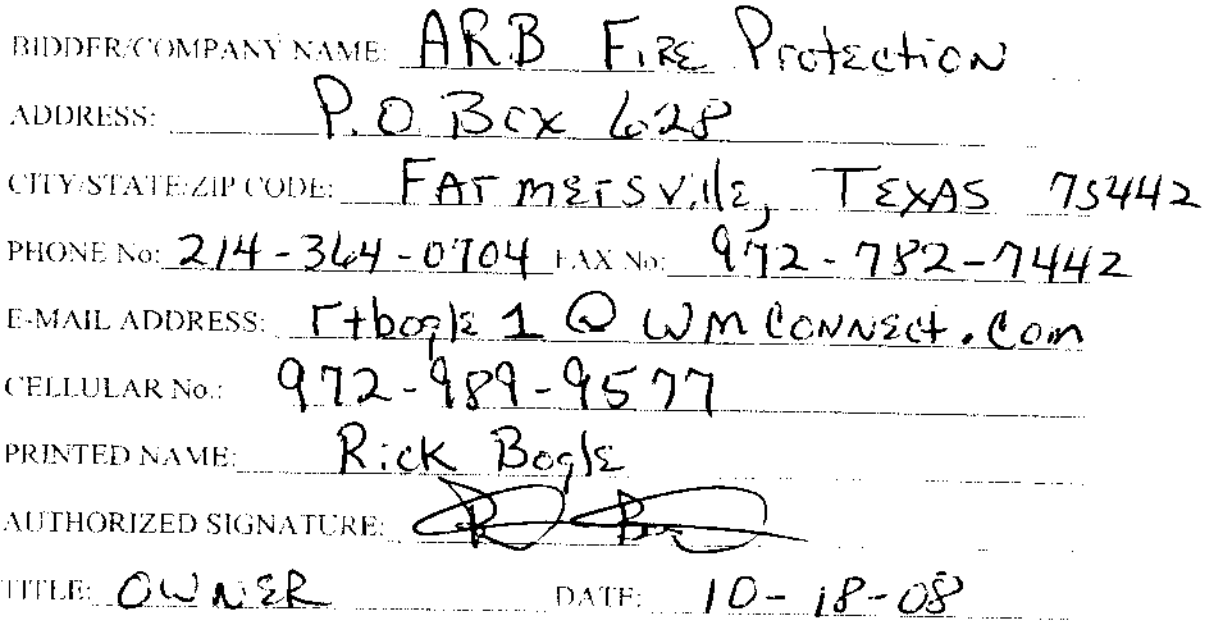 BIDDER/COMPANY NAME: ARB FIRE Protection
ADDRESS: P.O Box 628
CITY/STATE/ZIP CODE: FArmersville, TEXAS 75442
PHONE No: 214-364-0704 FAX No: 972-782-7442
E-MAIL ADDRESS: rtbogle1@wmconnect.com
CELLULAR No.: 972-989-9577
PRINTED NAME: Rick Bogle
AUTHORIZED SIGNATURE:
TITLE: OWNER DATE: 10-18-08